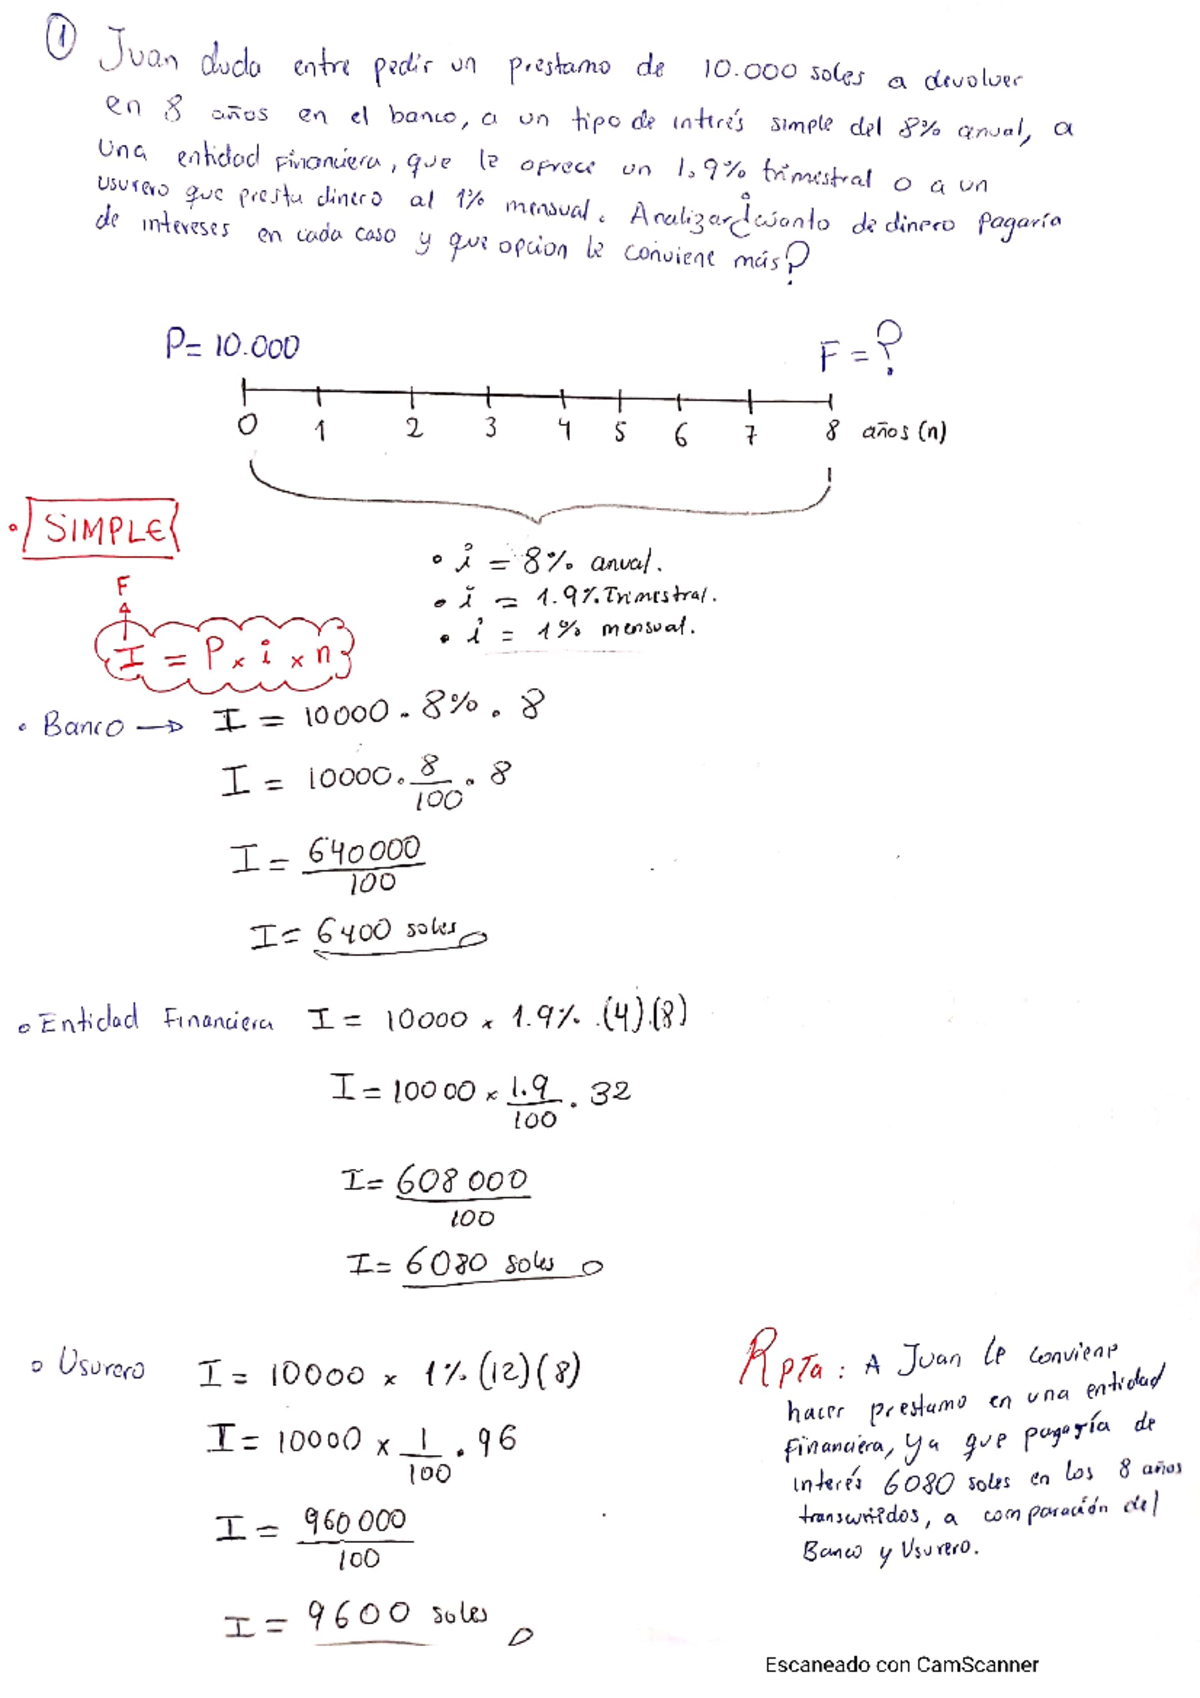 ① Juan duda entre pedir un prestamo de 10.000 soles a devolver
en 8 años en el banco, a un tipo de interés simple del 8% anual, a
una entidad Financiera, que le ofrece un 1,9% trimestral o a un
usurero que presta dinero al 1% mensual. Analizar ¿cuanto de dinero pagaría
de intereses en cada caso y que opcion le conviene más?
P= 10.000
F = ?
0 1 2 3 4 5 6 7 8 años (n)
• SIMPLE
• i = 8% anual.
• i = 1.9% Trimestral.
• i = 1% mensual.
F
I = P x i x n
• Banco → I = 10000 . 8% . 8
I = 10000 . 8/100 . 8
I = 640000/100
I = 6400 soles
• Entidad Financiera I = 10000 x 1.9% .(4).(8)
I = 10000 x 1.9/100 . 32
I = 608 000/100
I = 6080 soles
• Usurero I = 10000 x 1% (12)(8)
I = 10000 x 1/100 . 96
I = 960 000/100
I = 9600 soles
Rpta: A Juan le conviene
hacer prestamo en una entidad
Financiera, ya que pagaría de
interés 6080 soles en los 8 años
transcurridos, a comparación del
Banco y Usurero.
Escaneado con CamScanner